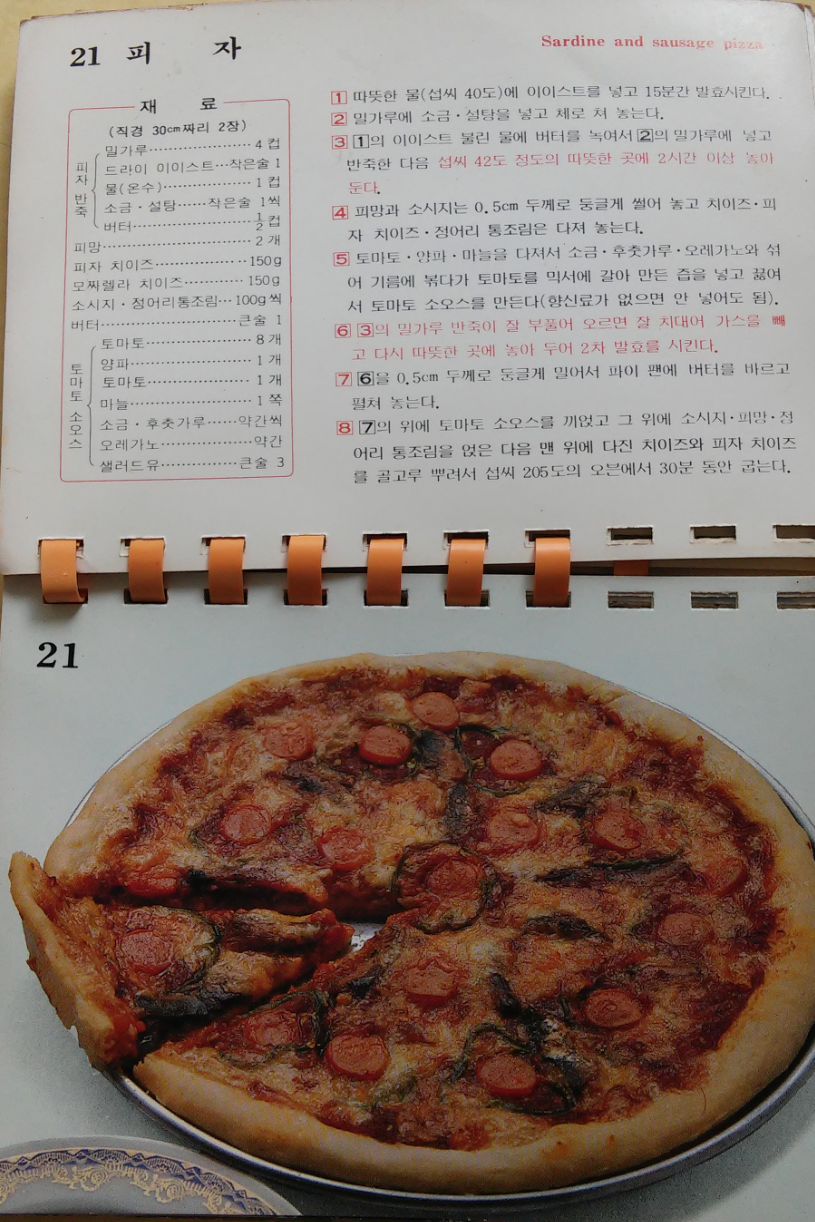 21 피 자
Sardine and sausage pizza
재 료
(직경 30cm짜리 2장)
피자 반죽
밀가루 4컵
드라이 이이스트 작은술 1
물(온수) 1컵
소금·설탕 작은술 1씩
버터 1/2컵
피망 2개
피자 치이즈 150g
모짜렐라 치이즈 150g
소시지·정어리통조림 100g씩
버터 큰술 1
토마토 소오스
토마토 8개
양파 1개
토마토 1개
마늘 1쪽
소금·후춧가루 약간씩
오레가노 약간
샐러드유 큰술 3
1 따뜻한 물(섭씨 40도)에 이이스트를 넣고 15분간 발효시킨다.
2 밀가루에 소금·설탕을 넣고 체로 쳐 놓는다.
3 1의 이이스트 불린 물에 버터를 녹여서 2의 밀가루에 넣고
반죽한 다음 섭씨 42도 정도의 따뜻한 곳에 2시간 이상 놓아
둔다.
4 피망과 소시지는 0.5cm 두께로 둥글게 썰어 놓고 치이즈·피
자 치이즈·정어리 통조림은 다져 놓는다.
5 토마토·양파·마늘을 다져서 소금·후춧가루·오레가노와 섞
어 기름에 볶다가 토마토를 믹서에 갈아 만든 즙을 넣고 끓여
서 토마토 소오스를 만든다(향신료가 없으면 안 넣어도 됨).
6 3의 밀가루 반죽이 잘 부풀어 오르면 잘 치대어 가스를 빼
고 다시 따뜻한 곳에 놓아 두어 2차 발효를 시킨다.
7 6을 0.5cm 두께로 둥글게 밀어서 파이 팬에 버터를 바르고
펼쳐 놓는다.
8 7의 위에 토마토 소오스를 끼얹고 그 위에 소시지·피망·정
어리 통조림을 얹은 다음 맨 위에 다진 치이즈와 피자 치이즈
를 골고루 뿌려서 섭씨 205도의 오븐에서 30분 동안 굽는다.
21